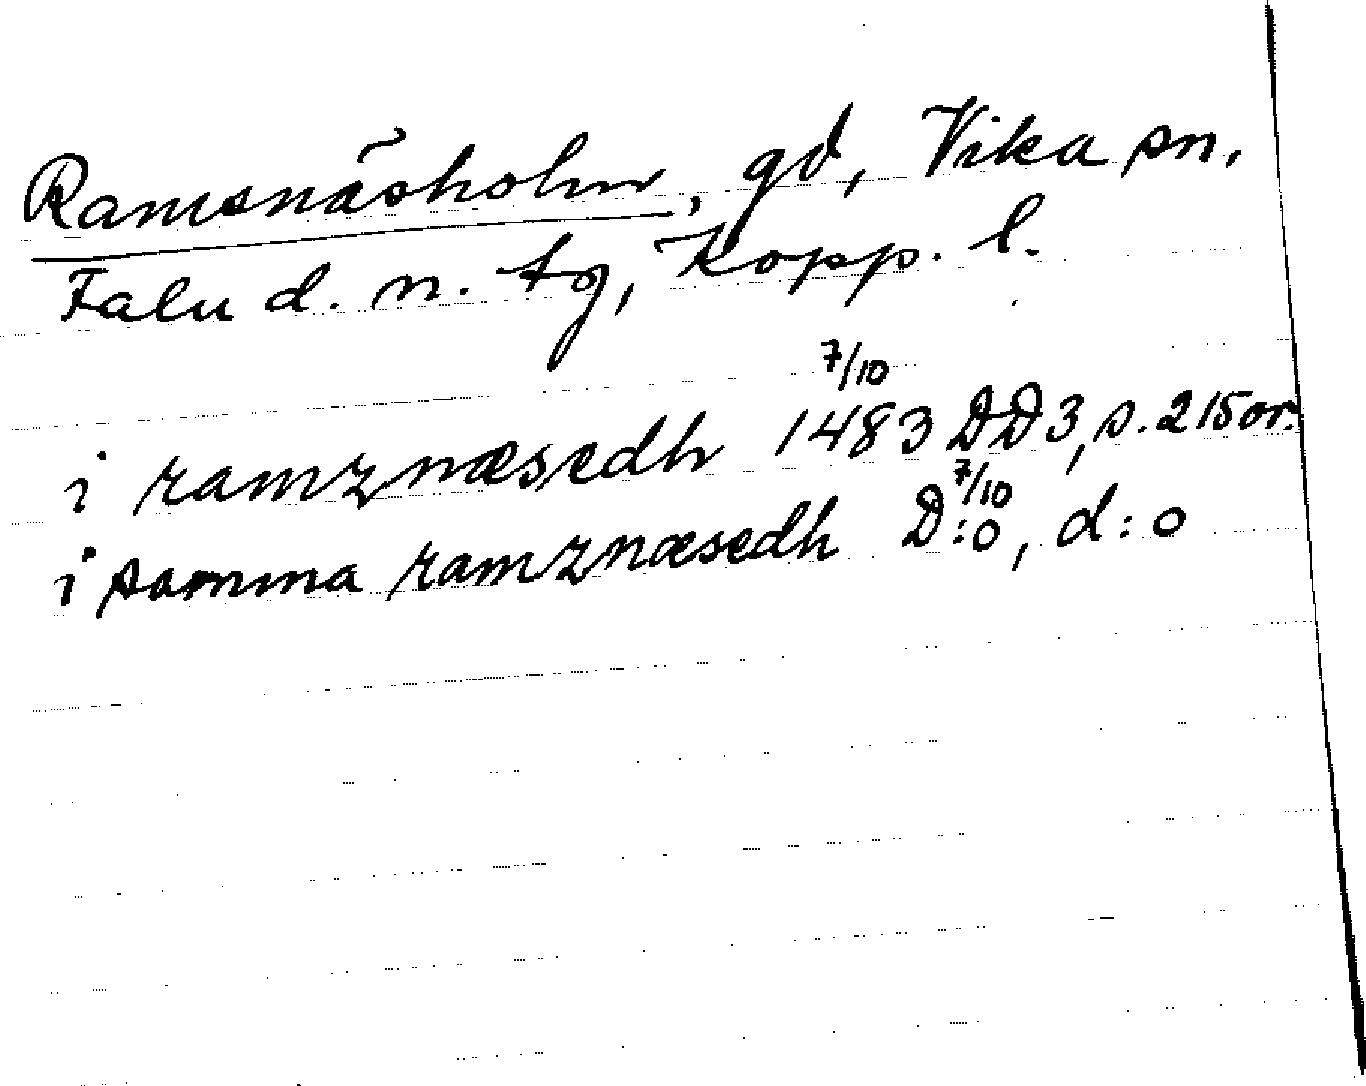 Ramsnäsholm, gd, Vika sn,
Falu d. n. tg, Kopp. l.
i ramznæsedh 7/10 1483 DD3, s. 215 or.
i samma ramznæsedh 7/10 D:o, d:o